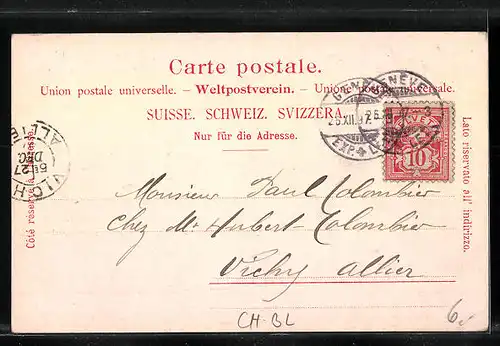 Carte postale.
Union postale universelle. — Weltpostverein. — Unione postale universale.
SUISSE. SCHWEIZ. SVIZZERA.
Nur für die Adresse.
Côté réservé à l'adresse.
Lato riservato all' indirizzo.
GENÈVE
26.XII.97.
EXP. L
HELVETIA
10
VICHY
ALLIER
5E 27
DEC
Monsieur Paul Colombier
Chez Mr Hubert-Colombier
Vichy Allier
CH-BL
6.-